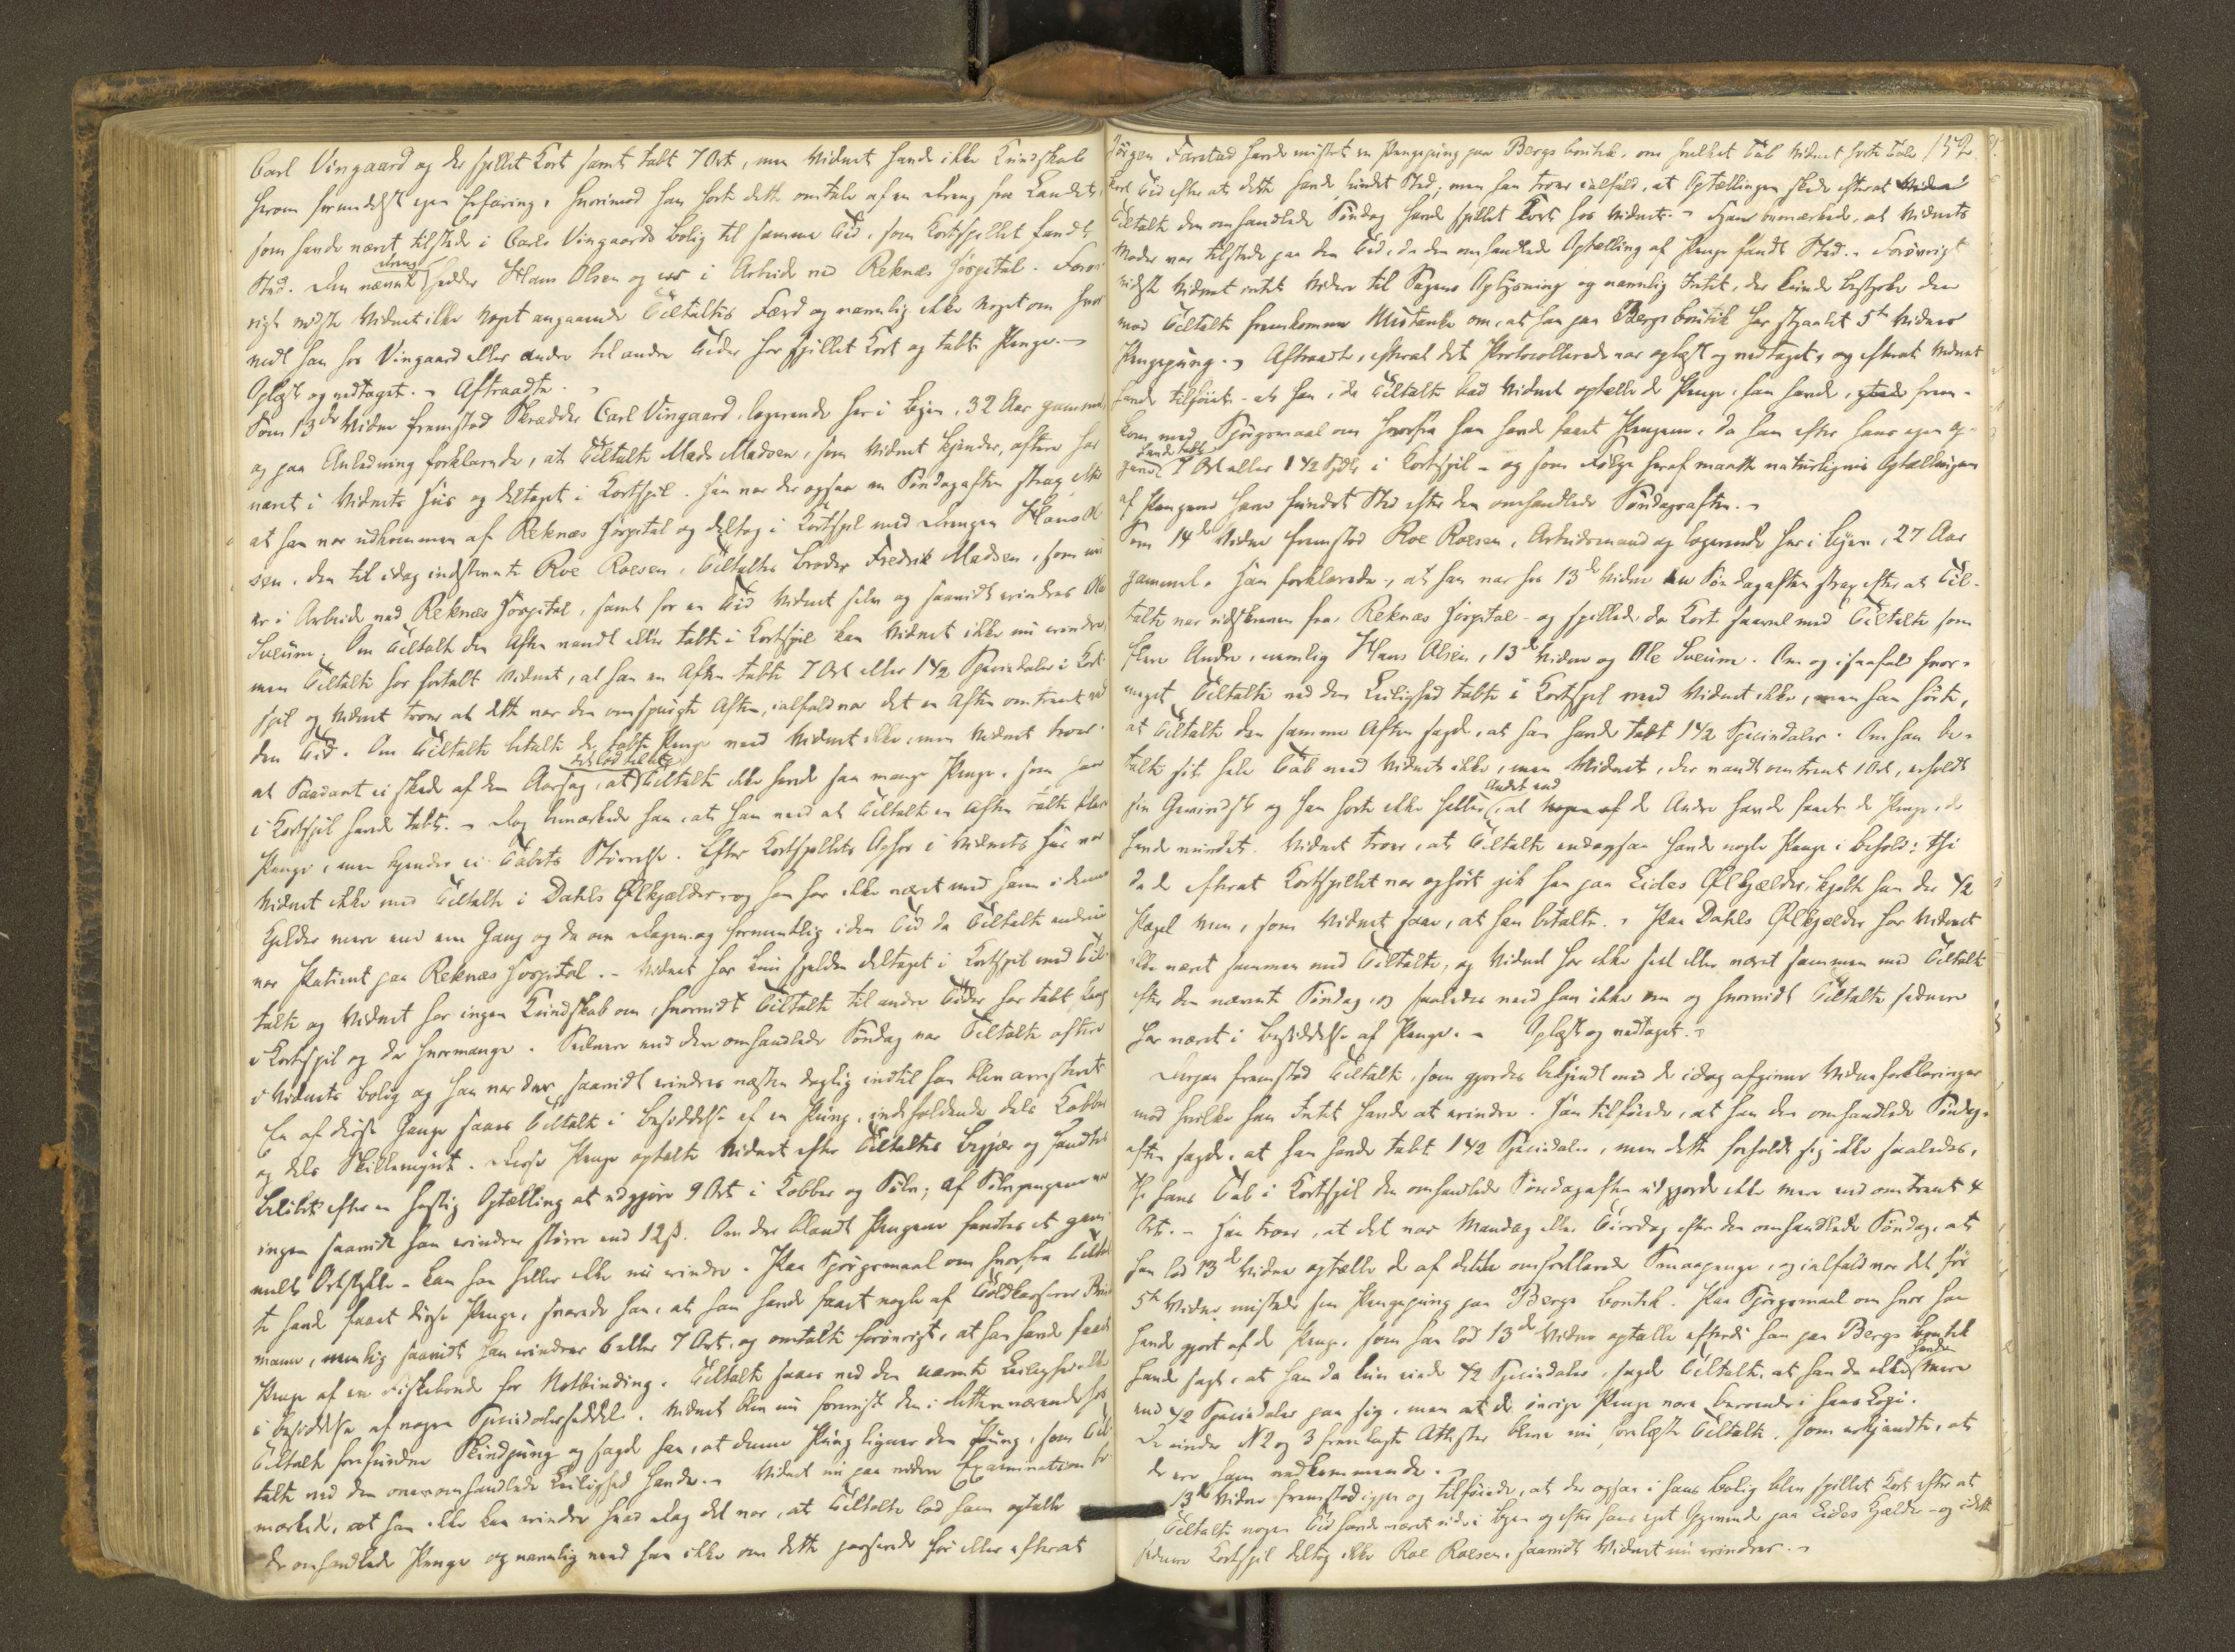 Carl Vingaard og der spillet Kort samt tabt 7 Ort, men Vidnet havde ikke Kundskab
herom formedelst egen Erfaring, hvorimod han hørte dette omtale af en Dreng fra Landet,
som havde været tilstede i Carls Vingaards bolig til samme Tid, som Kortspillet fandt
Sted. Den nævnte Dreng hedder Hans Olsen og var i Arbeide ved Reknæs Hospital. Forøv
rigt vidste Vidnet ikke noget angaaende Tiltaltes Færd og navnlig ikke noget om hvor
vidt han hos Vingaard eller andre til andre Tider har spillet Kort og tabt Penge. -
Oplæst og vedtaget. - Aftraadte. -
Som 13de Vidne fremstod Skrædder Carl Vingaard, logerende her i byen, 32 Aar gammel
og paa Anledning forklarede, at Tiltalte Mads Madsen, som Vidnet kjender, oftere har
været i Vidnets Hus og deltaget i Kortspil. Han var der ogsaa en Søndagaften strax efter
at han var udkommen af Reknæs Hospital og deltog i Kortspil med Drengen Hans Ol
sen, den til idag indstevnte Roe Roesen, Tiltaltes Broder Fredrik Madsen, som nu
er i Arbeide ved Reknæs Hospital, samt for en Tid Vidnet selv og saavidt erindres Ole
Sveum. Om Tiltalte den Aften vandt eller tabte i Kortspil kan Vidnet ikke nu erindre,
men Tiltalte har fortalt Vidnet, at han en Aften tabte 7 Ort eller 1 1/2 Speciedaler i Kort
spil og Vidnet troer at dette var den omspurgte Aften, ialfald var det en Aften omtrent ved
den Tid. Om Tiltalte betalte de tabte Penge veed Vidnet ikke, men Vidnet troer
at Saadant ei skede af den Aarsag, at Tiltalte ikke havde saa mange Penge, som han
i Kortspil havde tabt. - Dog bemærkede han, at han veed at Tiltalte en Aften talte sine
Penge, men kjender ei Tabets Størrelse. Efter Kortspillets Ophør i Vidnets Hus var
Vidnet ikke med Tiltalte i Dahls Ølkjælder, og han har ikke været med ham i denne
Kjelder mere end een Gang og da om Dagen og formentlig i den Tid da Tiltalte endnu
var Patient paa Reknæs Hospital. - Vidnet har kun sjelden deltaget i Kortspil med Til
talte og Vidnet har ingen Kundskab om, hvorvidt Tiltalte til andre Tider har tabt Penge
i Kortspil og da hvormange. Senere end den omhandlede Søndag var Tiltalte oftere
i Vidnets bolig og han var der saavidt erindres næsten daglig indtil han blev arresteret.
En af disse Gange saaes Tiltalte i besiddelse af en Pung, indeholdende dels Kobber
og dels Skillemynt. Disse Penge optalte Vidnet efter Tiltaltes begjær og fandtes
beløbet efter en hastig Optælling at udgjøre 9 Ort i Kobber og Sølv; af Sølvpengene var
ingen saavidt han erindrer større end 12 ß. Om der blandt Pengene fandtes et gam
melt Ortstykke - kan han heller ikke nu erindre. Paa Spørgsmaal om hvorfra Tiltal
te havde faaet disse Penge, svarede han, at han havde faaet nogle af Toldkasserer Brin
mann, nemlig saavidt han erindrer 6 eller 7 Ort, og omtalte forøvrigt, at han havde faaet
Penge af en Fiskebonde for Notbinding. Tiltalte saaes ved den nævnte Leilighed ikke
i besiddelse af nogen Speciedalerseddel. Vidnet blev nu foreviist den i dette nærværende hos
Tiltalte forefundne Skindpung og sagde han, at denne Pung ligner den Pung, som Til
talte ved den ovenomhandlede Leilighed havde. - Vidnet nu paa videre Examination be
mærkede, at han ikke kan erindre hvad Dag det var, at Tiltalte lod ham optælle
de omhandlede Penge og navnlig veed han ikke om dette passerede før eller efterat
Jørgen Farstad havde mistet en Pengepung paa Bergs boutik, om hvilket Tab Vidnet hørte Tale 152
kort Tid efter at dette havde fundet Sted; men han troer ialfald, at Optællingen skede efterat
Tiltalte den omhandlede Søndag havde spillet Kort hos Vidnet. - Han bemærkede, at Vidnets
Moder var tilstede paa den Tid, da den omhandlede Optælling af Penge fandt Sted. - Forøvrigt
vidste Vidnet intet Videre til Sagens Oplysning og navnlig Intet, der kunde bestyrke den
mod Tiltalte fremkomne Mistanke om, at han paa Bergs boutik har stjaalet 5te Vidnes
Pengepung. - Aftraadte, efterat det Protocollerede var oplæst og vedtaget, og efterat Vidnet
havde tilføiet - at han, da Tiltalte bad Vidnet optælle de Penge, han havde, frem-
kom med Spørgsmaal om hvorfra han havde faaet Pengene, da han efter hans egen op-
gave havde tabt 7 Ort eller 1 1/2 Spdlr i Kortspil - og som Følge heraf maatte naturligvis Optællingen
af Pengene have fundet Sted efter den omhandlede Søndagsaften. -
Som 14de Vidne fremstod Roe Roesen, Arbeidsmand og logerende her i byen, 27 Aar
gammel. Han forklarede, at han var hos 13de Vidne en Søndagaften strax efter at Til-
talte var udskreven fra Reknæs Hospital - og spillede da Kort saavel med Tiltalte som
flere Andre, nemlig Hans Olsen, 13de Vidne og Ole Sveum. Om og isaafald hvor-
meget Tiltalte ved den Leilighed tabte i Kortspil veed Vidnet ikke, men han hørte,
at Tiltalte den samme Aften sagde, at han havde tabt 1 1/2 Speciedaler. Om han be-
talte sit hele Tab veed Vidnet ikke, men Vidnet, der vandt omtrent 1 Ort, erholdt
sin Gevindst og han hørte ikke heller Andet end at de Andre havde faaet de Penge, de
havde vundet. Vidnet troer, at Tiltalte endogsaa havde nogle Penge i behold: thi
da de efterat Kortspillet var ophørt gik hen paa Eides Ølkjælder, kjøbte han der 1/2
Pægel Viin, som Vidnet saae, at han betalte. - Paa Dahls Ølkjelder har Vidnet
ikke været sammen med Tiltalte, og Vidnet har ikke seet eller været sammen med Tiltalte
efter den nævnte Søndag, og saaledes veed han ikke om og hvorvidt Tiltalte senere
har været i besiddelse af Penge. - Oplæst og vedtaget. -
Derpaa fremstod Tiltalte, som gjordes bekjendt med de idag afgivne Vidneforklaringer
mod hvilke han Intet havde at erindre. Han tilføiede, at han den omhandlede Søndag-
aften sagde, at han havde tabt 1 1/2 Speciedaler, men dette forholdt sig ikke saaledes,
thi hans Tab i Kortspil den omhandlede Søndagaften udgjorde ikke mere end omtrent 4
Ort. - Han troer, at det var Mandag eller Tirsdag efter den omhandlede Søndag, at
han lod 13de Vidne optælle de af dette omforklarede Smaapenge, og ialfald var det før
5te Vidne mistede sin Pengepung paa Bergs boutik. Paa Spørgsmaal om hvor han
havde gjort af de Penge, som han lod 13de Vidne optælle efterdi han paa Bergs boutik
havde sagt, at han da kun eiede 1/2 Speciedaler, sagde Tiltalte, at han da ikke havde mere
end 1/2 Speciedaler paa sig, men at de øvrige Penge vare beroende i hans Logi.
De under N 2 og 3 fremlagte Attester bleve nu forelæste Tiltalte, som erkjendte, at
de ere ham vedkommende. -
13de Vidne fremstod igjen og tilføiede, at der ogsaa i hans bolig blev spillet Kort efter at
Tiltalte nogen Tid havde været ude i byen og efter hans eget Opgivende paa Eides Kjælder - og i dette
senere Kortspil deltog ikke Roe Roesen, saavidt Vidnet nu erindrer. -